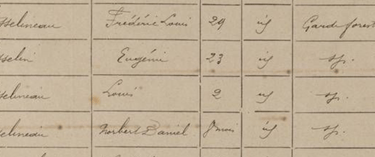 sselineau Frédéric Louis 29 id Garde forest
sselin Eugénie 23 id sp.
sselineau Louis 2 id sp.
sselineau Norbert Daniel 8 mois id sp.